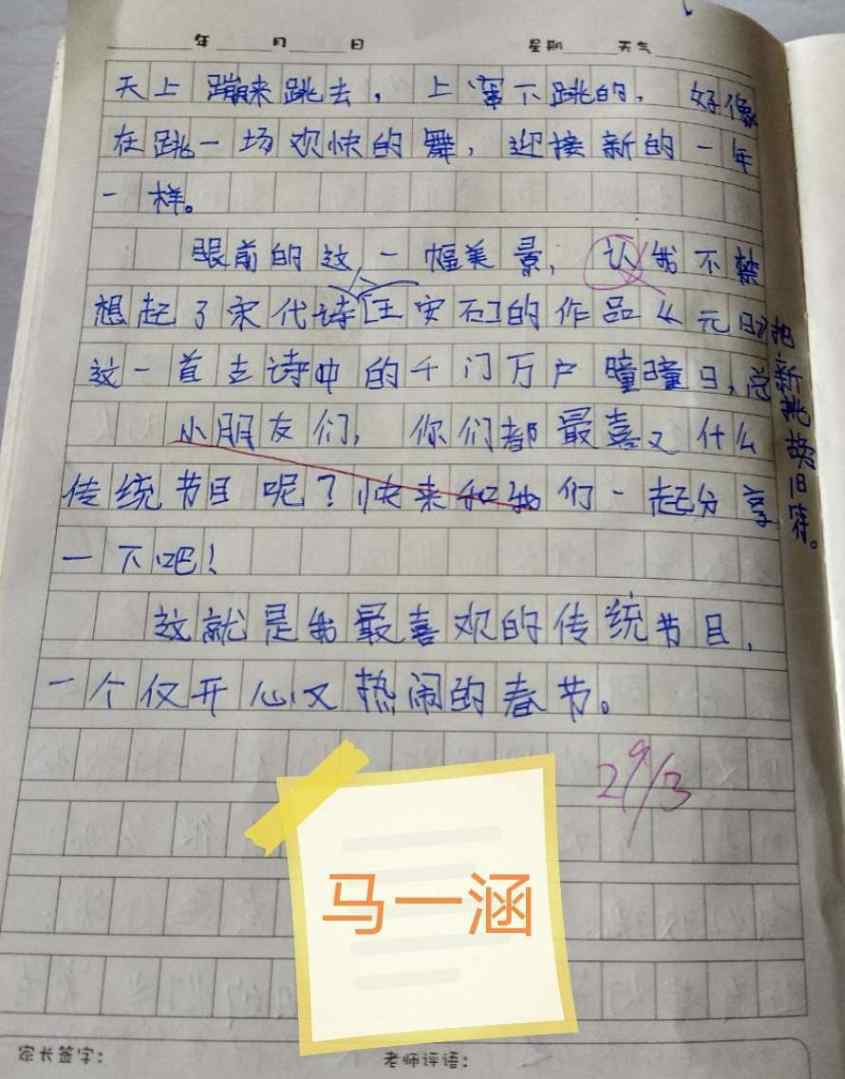 年 月 日 星期 天气
天上蹦来跳去，上窜下跳的，好像
在跳一场欢快的舞，迎接新的一年
一样。
眼前的这一幅美景，认我不禁
想起了宋代诗王安石的作品《元日》
这一首古诗中的千门万户曈曈日，总
把新桃换旧符。
小朋友们，你们都最喜又什么
传统节目呢？快来和我们一起分享
一下吧！
这就是我最喜欢的传统节目，
一个仅开心又热闹的春节。
29/3
马一涵
家长签字：
老师评语：